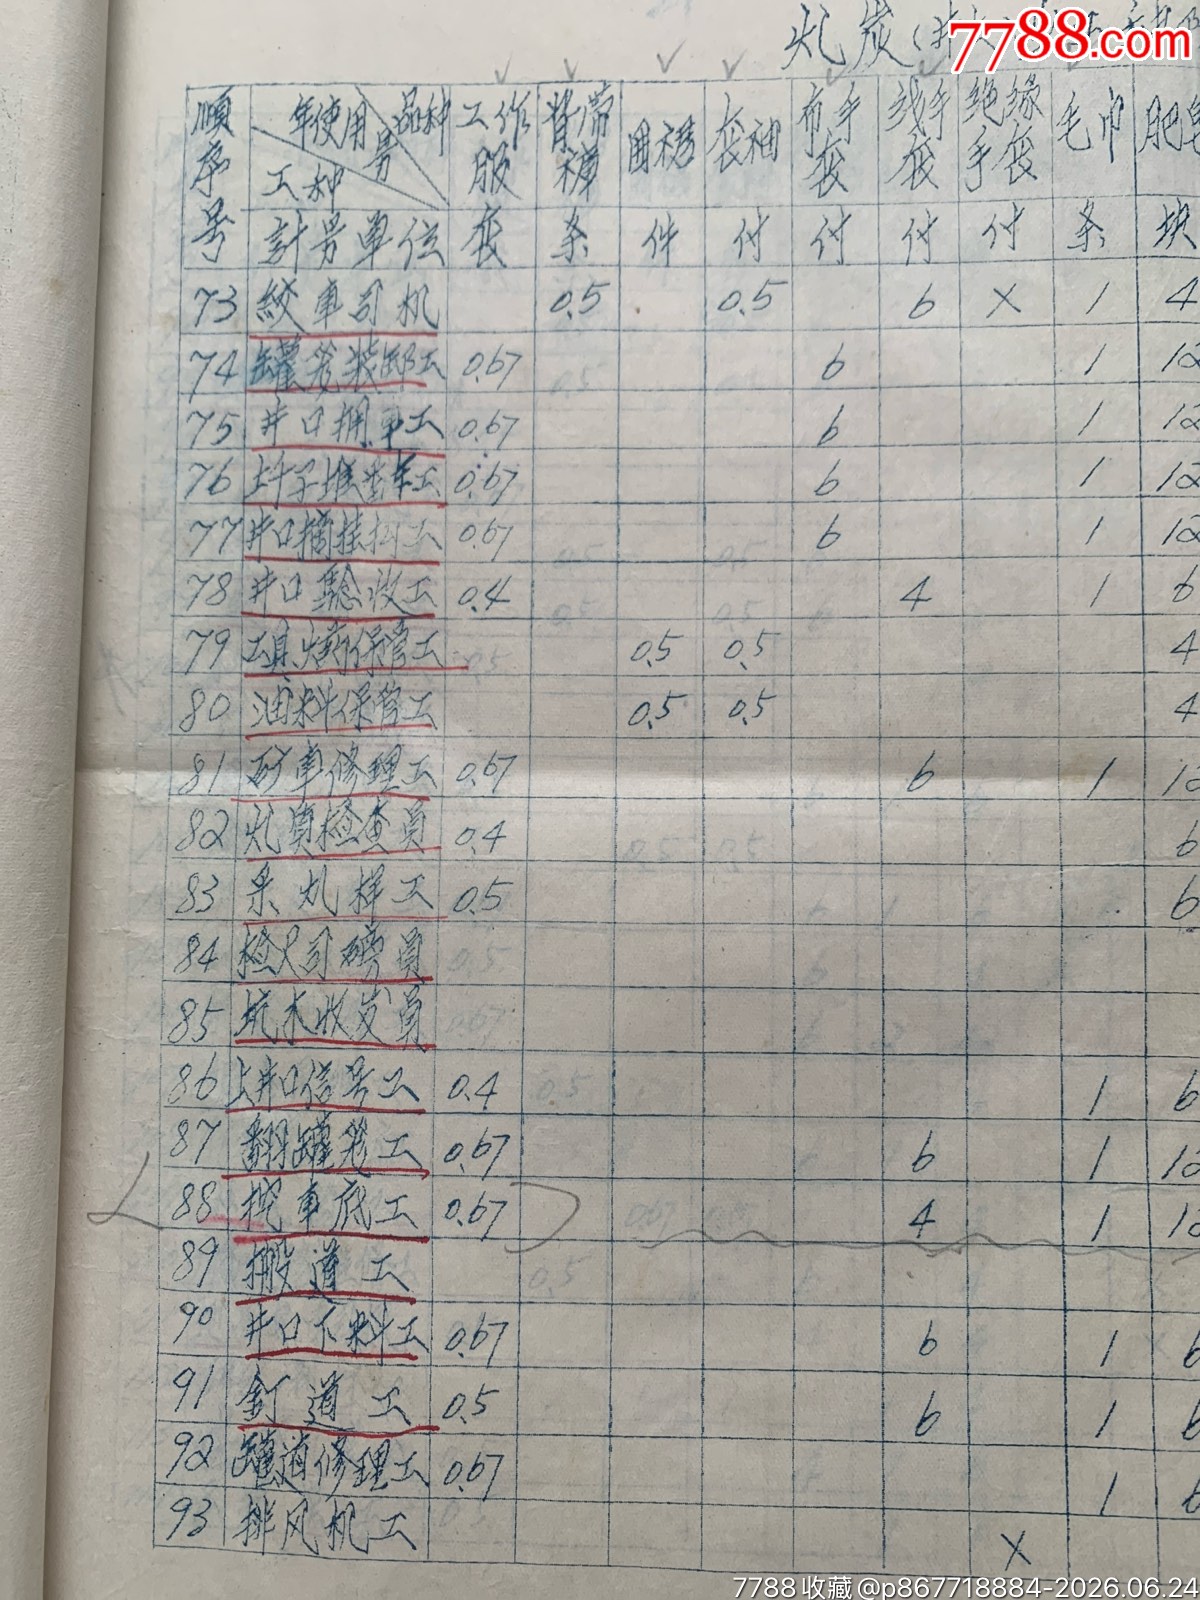 7788.com
順序号 年使用号 品种 工种 工作服 背带裤 围裙 套袖 布手套 线手套 绝缘手套 毛巾 肥
計号单位 套 条 件 付 付 付 付 条 块
73 絞車司机 0.5 0.5 6 × 1 4
74 罐笼装卸工 0.67 6 1 12
75 井口拥車工 0.67 6 1 12
76 0.67 6 1 12
77 井口摘挂钩工 0.67 6 1 12
78 井口驗收工 0.4 4 1 6
79 保管工 0.5 0.5 4
80 油料保管工 0.5 0.5 4
81 矿車修理工 0.67 6 1 12
82 检查員 0.4 6
83 样工 0.5 6
84 司磅員
85 坑木收发員
86 上井口信号工 0.4 1 6
87 翻罐笼工 0.67 6 1 12
88 挖車底工 0.67 4 1 12
89 搬道工
90 井口下料工 0.67 6 1 6
91 釘道工 0.5 6 1 6
92 罐道修理工 0.67 1 6
93 排风机工 ×
7788收藏@p867718884-2026.06.24